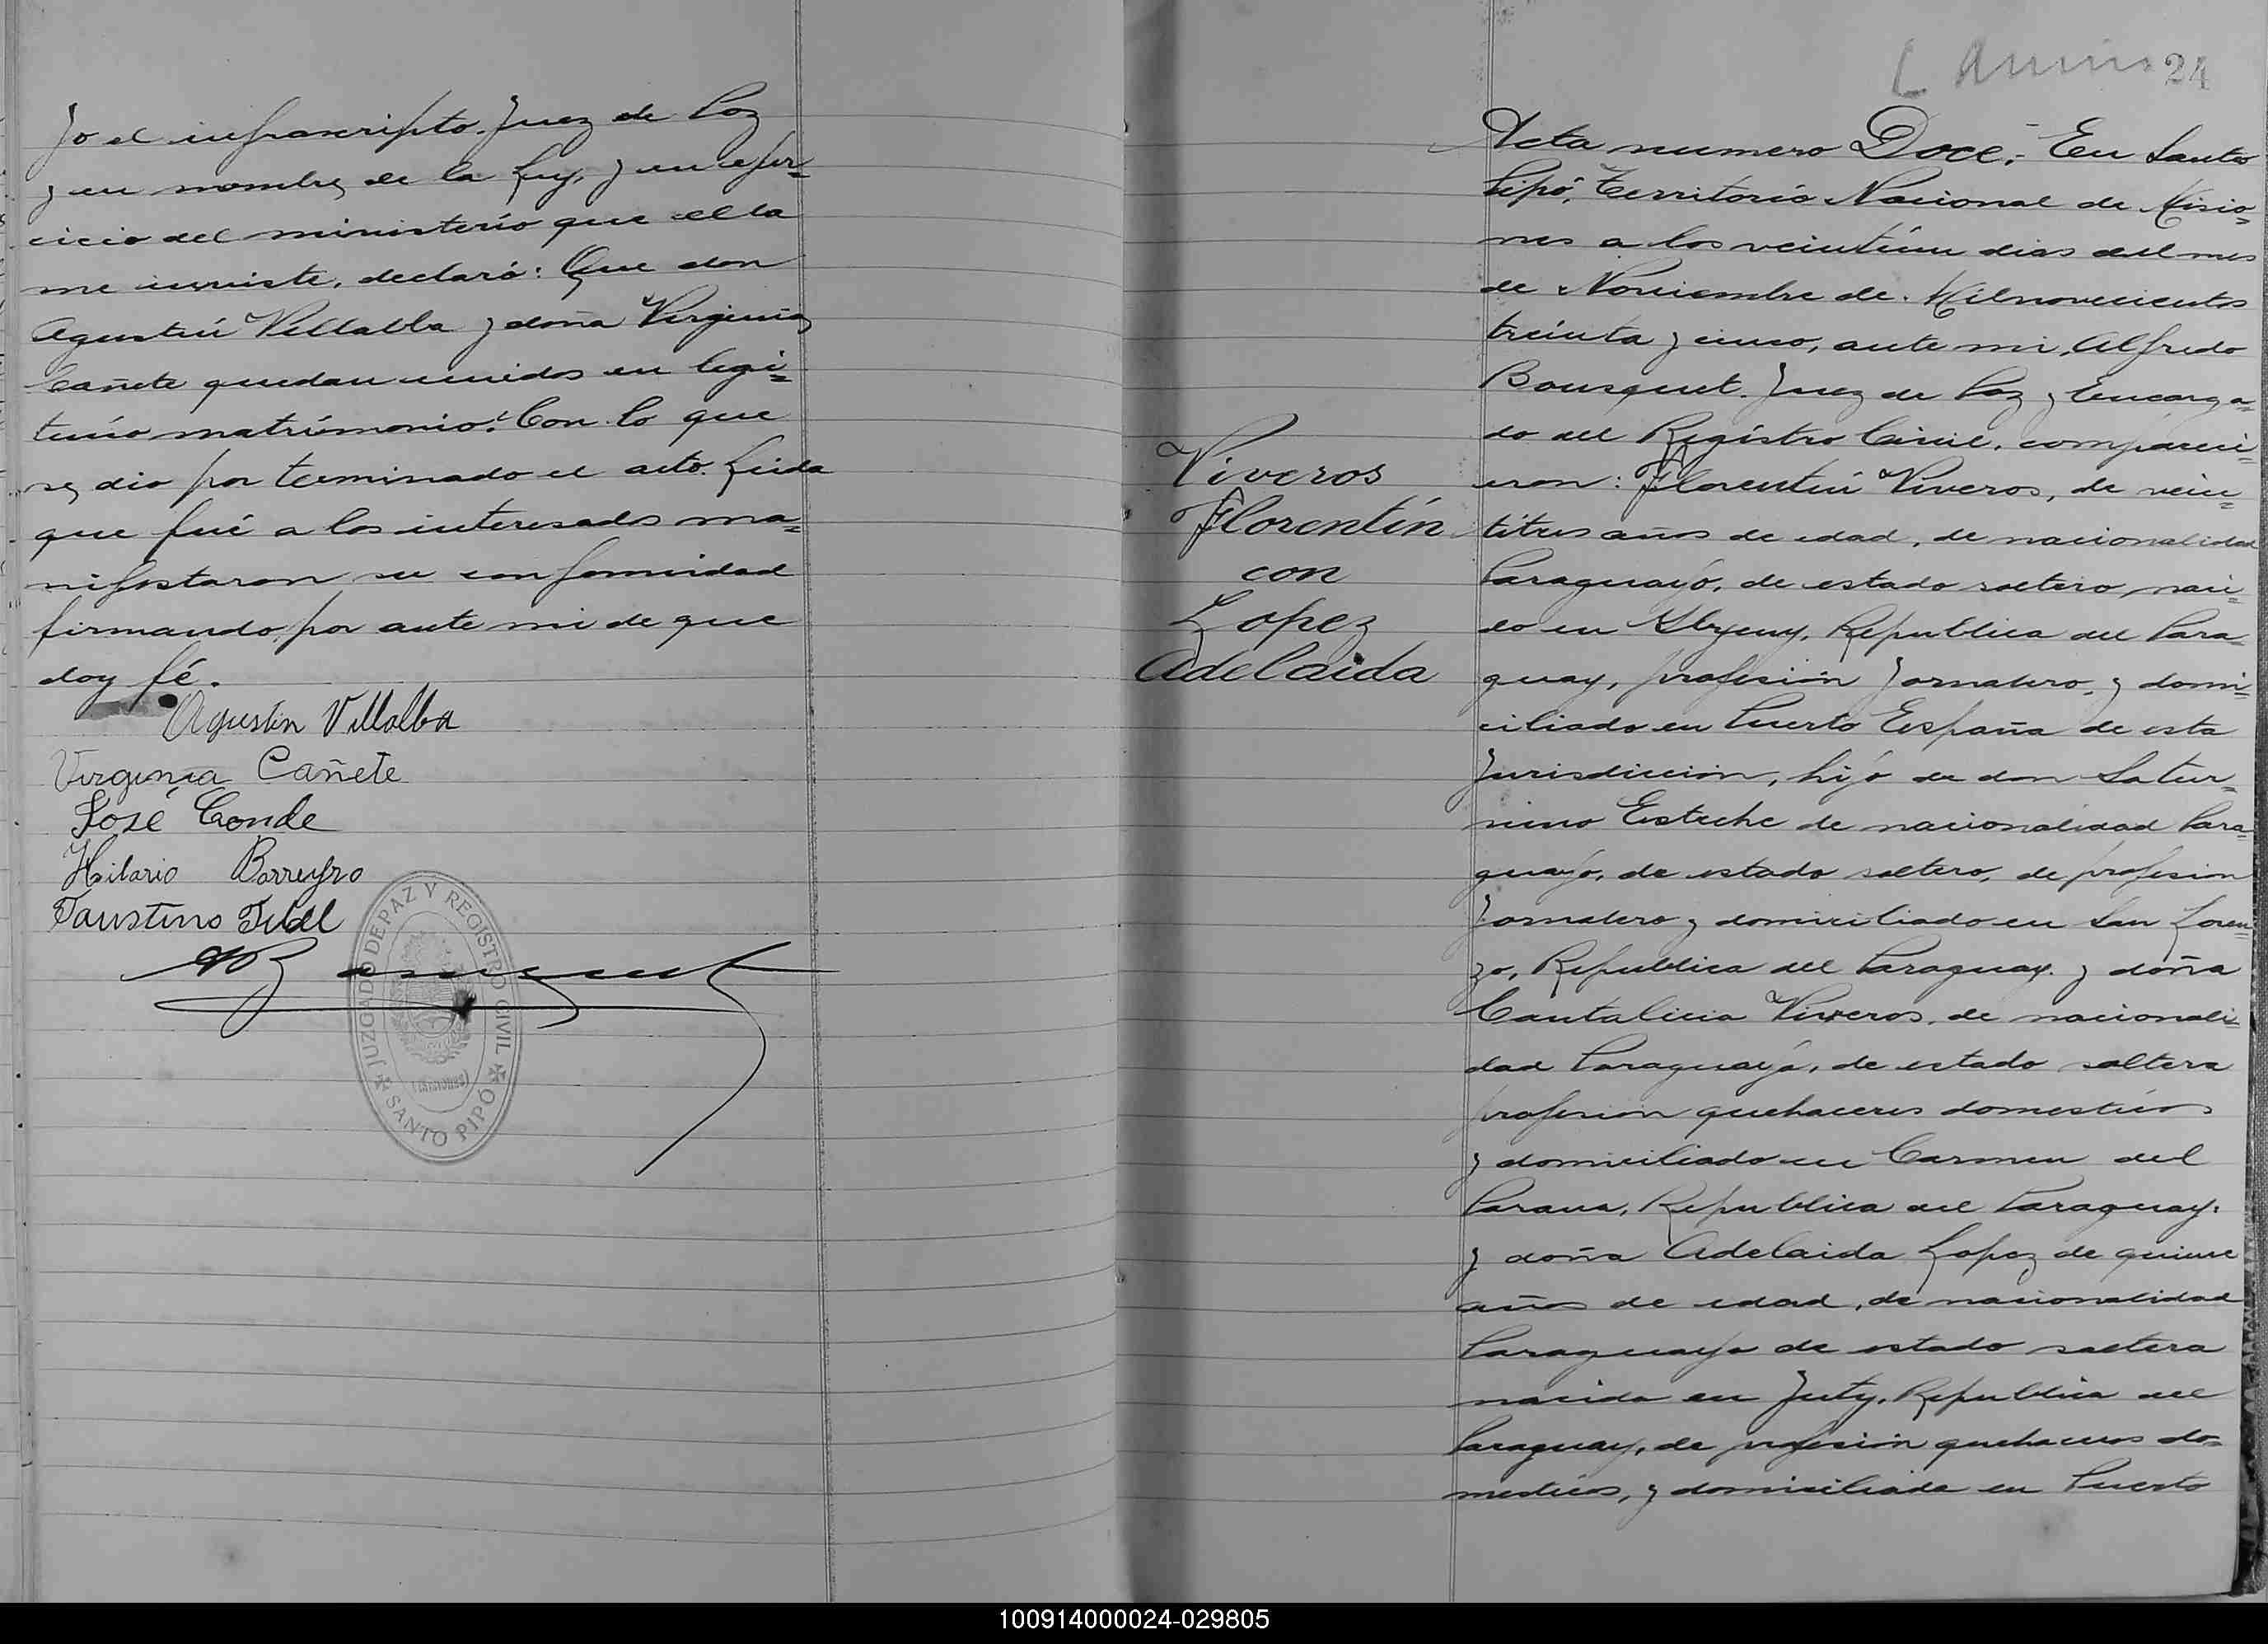 Yo el infrascripto Juez de Paz
y en nombre de la Ley, y en ejer=
cicio del ministerio que ella
me inviste, declaró: Que don
Agustín Villalba y doña Virginia
Cañete quedan unidos en legi=
timo matrimonio. Con lo que
se dio por terminado el acto. Leida
que fué a los interesados ma=
nifestaron su conformidad
firmando por ante mi de que
doy fé.
Agustin Villalba
Virginia Cañete
José Conde
Hilario Barreyro
Faustino Fidel
JUZGADO DE PAZ Y REGISTRO CIVIL
(Misiones)
SANTO PIPÓ
24
Acta numero Doce.- En Santo
Pipó, Territorio Nacional de Misio=
nes a los veintiún dias del mes
de Noviembre de Milnovecientos
treinta y cinco, ante mi, Alfredo
Bousquet. Juez de Paz y Encarga=
do del Registro Civil, comparecie=
eron: Florentín Viveros, de vein=
titres años de edad, de nacionalidad
Paraguayo, de estado soltero, naci=
do en Republica del Para
guay, profesión Jornalero, y domi=
ciliado en Puerto España de esta
Jurisdicción, hijo de don Satur=
nino Esteche de nacionalidad Para=
guayo, de estado soltero, de profesion
Jornalero y domiciliado en San Loren=
zo, Republica del Paraguay. y doña
Cantalicia Viveros, de nacionali=
dad Paraguaya, de estado soltera
profesion quehaceres domesticos
y domiciliado en Carmen del
Parana, Republica del Paraguay.
y doña Adelaida Lopez de quince
años de edad, de nacionalidad
Paraguaya de estado soltera
nacida en Juty, Republica del
Paraguay, de profesión quehaceres do=
mesticos, y domiciliada en Puerto
Viveros
Florentín
con
Lopez
Adelaida
100914000024-029805